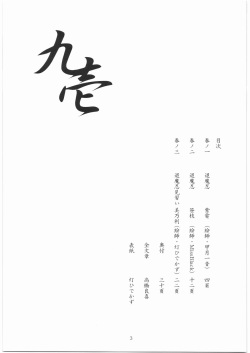 九壱
目次
参ノ一 退魔忍 四頁
参ノ二 退魔忍 笹枝（絵師・ 十二頁
参ノ三 退魔忍見習い 美乃利（絵師・灯ひでかず）二二頁
奥付 三十頁
全文章 高橋良喜
表紙 灯ひでかず
3